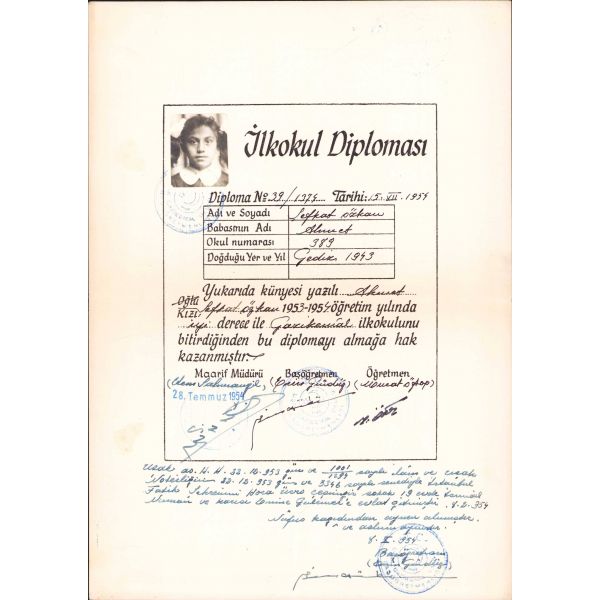 İlkokul Diploması
Diploma No 39/1374 Tarihi: 15.VII.1954
Adı ve Soyadı Şefkat Özkan
Babasının Adı Ahmet
Okul numarası 389
Doğduğu Yer ve Yıl Gediz 1943
Yukarıda künyesi yazılı Ahmet
Oğlu
Kızı Şefkat Özkan 1953-1954 öğretim yılında
iyi derece ile Gazikemal ilkokulunu
bitirdiğinden bu diplomayı almağa hak
kazanmıştır.
Maarif Müdürü Başöğretmen Öğretmen
28. Temmuz 1954
Uşak 22.10.953 gün ve sayılı ilâm ve Uşak
Noterliğinin 22.12.953 gün ve 3346 sayılı senediyle İstanbul
Fatih Hoca sokak 19 evde
ve karısı Emine evlat
Nüfus kâğıdından aynen alınmıştır.
954
Başöğretmen